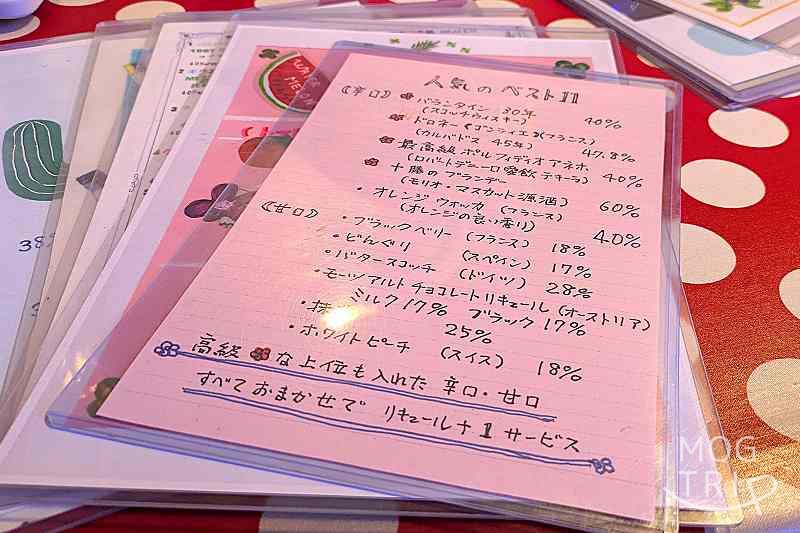 人気のベスト11
《辛口》 バランタイン 30年 40%
(スコッチウィスキー)
(カルバドス 45年) 47.8%
最高級 ポルフィディオ アネホ
(ロバートデニーロ愛飲 テキーラ) 40%
十勝のブランデー
(モリオ・マスカット源酒) 60%
・オレンジ ウォッカ (フランス)
(オレンジの良い香り) 40%
《甘口》 ・ブラックベリー (フランス) 18%
・どんぐり (スペイン) 17%
・バタースコッチ (ドイツ) 28%
・モーツアルト チョコレートリキュール (オーストリア)
ミルク 17% ブラック 17%
25%
・ホワイトピーチ (スイス) 18%
高級な上位も入れた 辛口・甘口
すべておまかせで リキュール+1サービス
WATER
MELON
MOG
TRIP